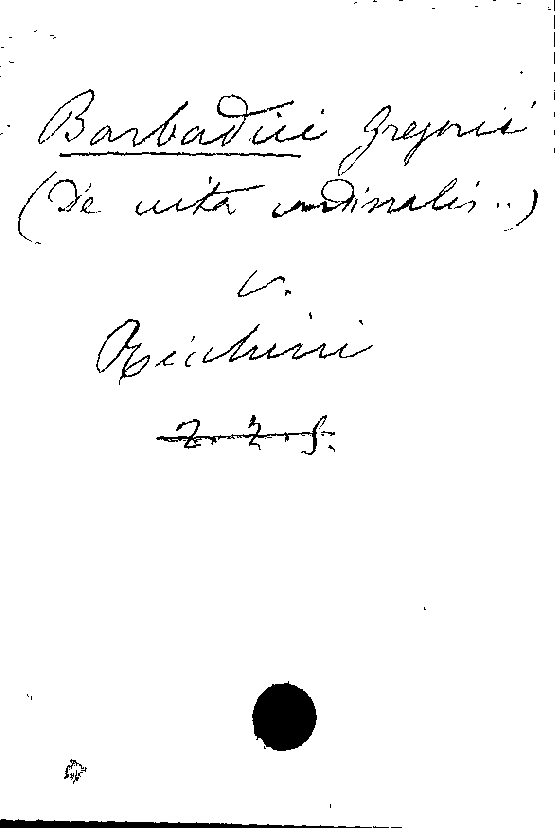 Barbadici Gregorii
(De vita cardinalis..)
v.
Ricchini
2. 2. f.